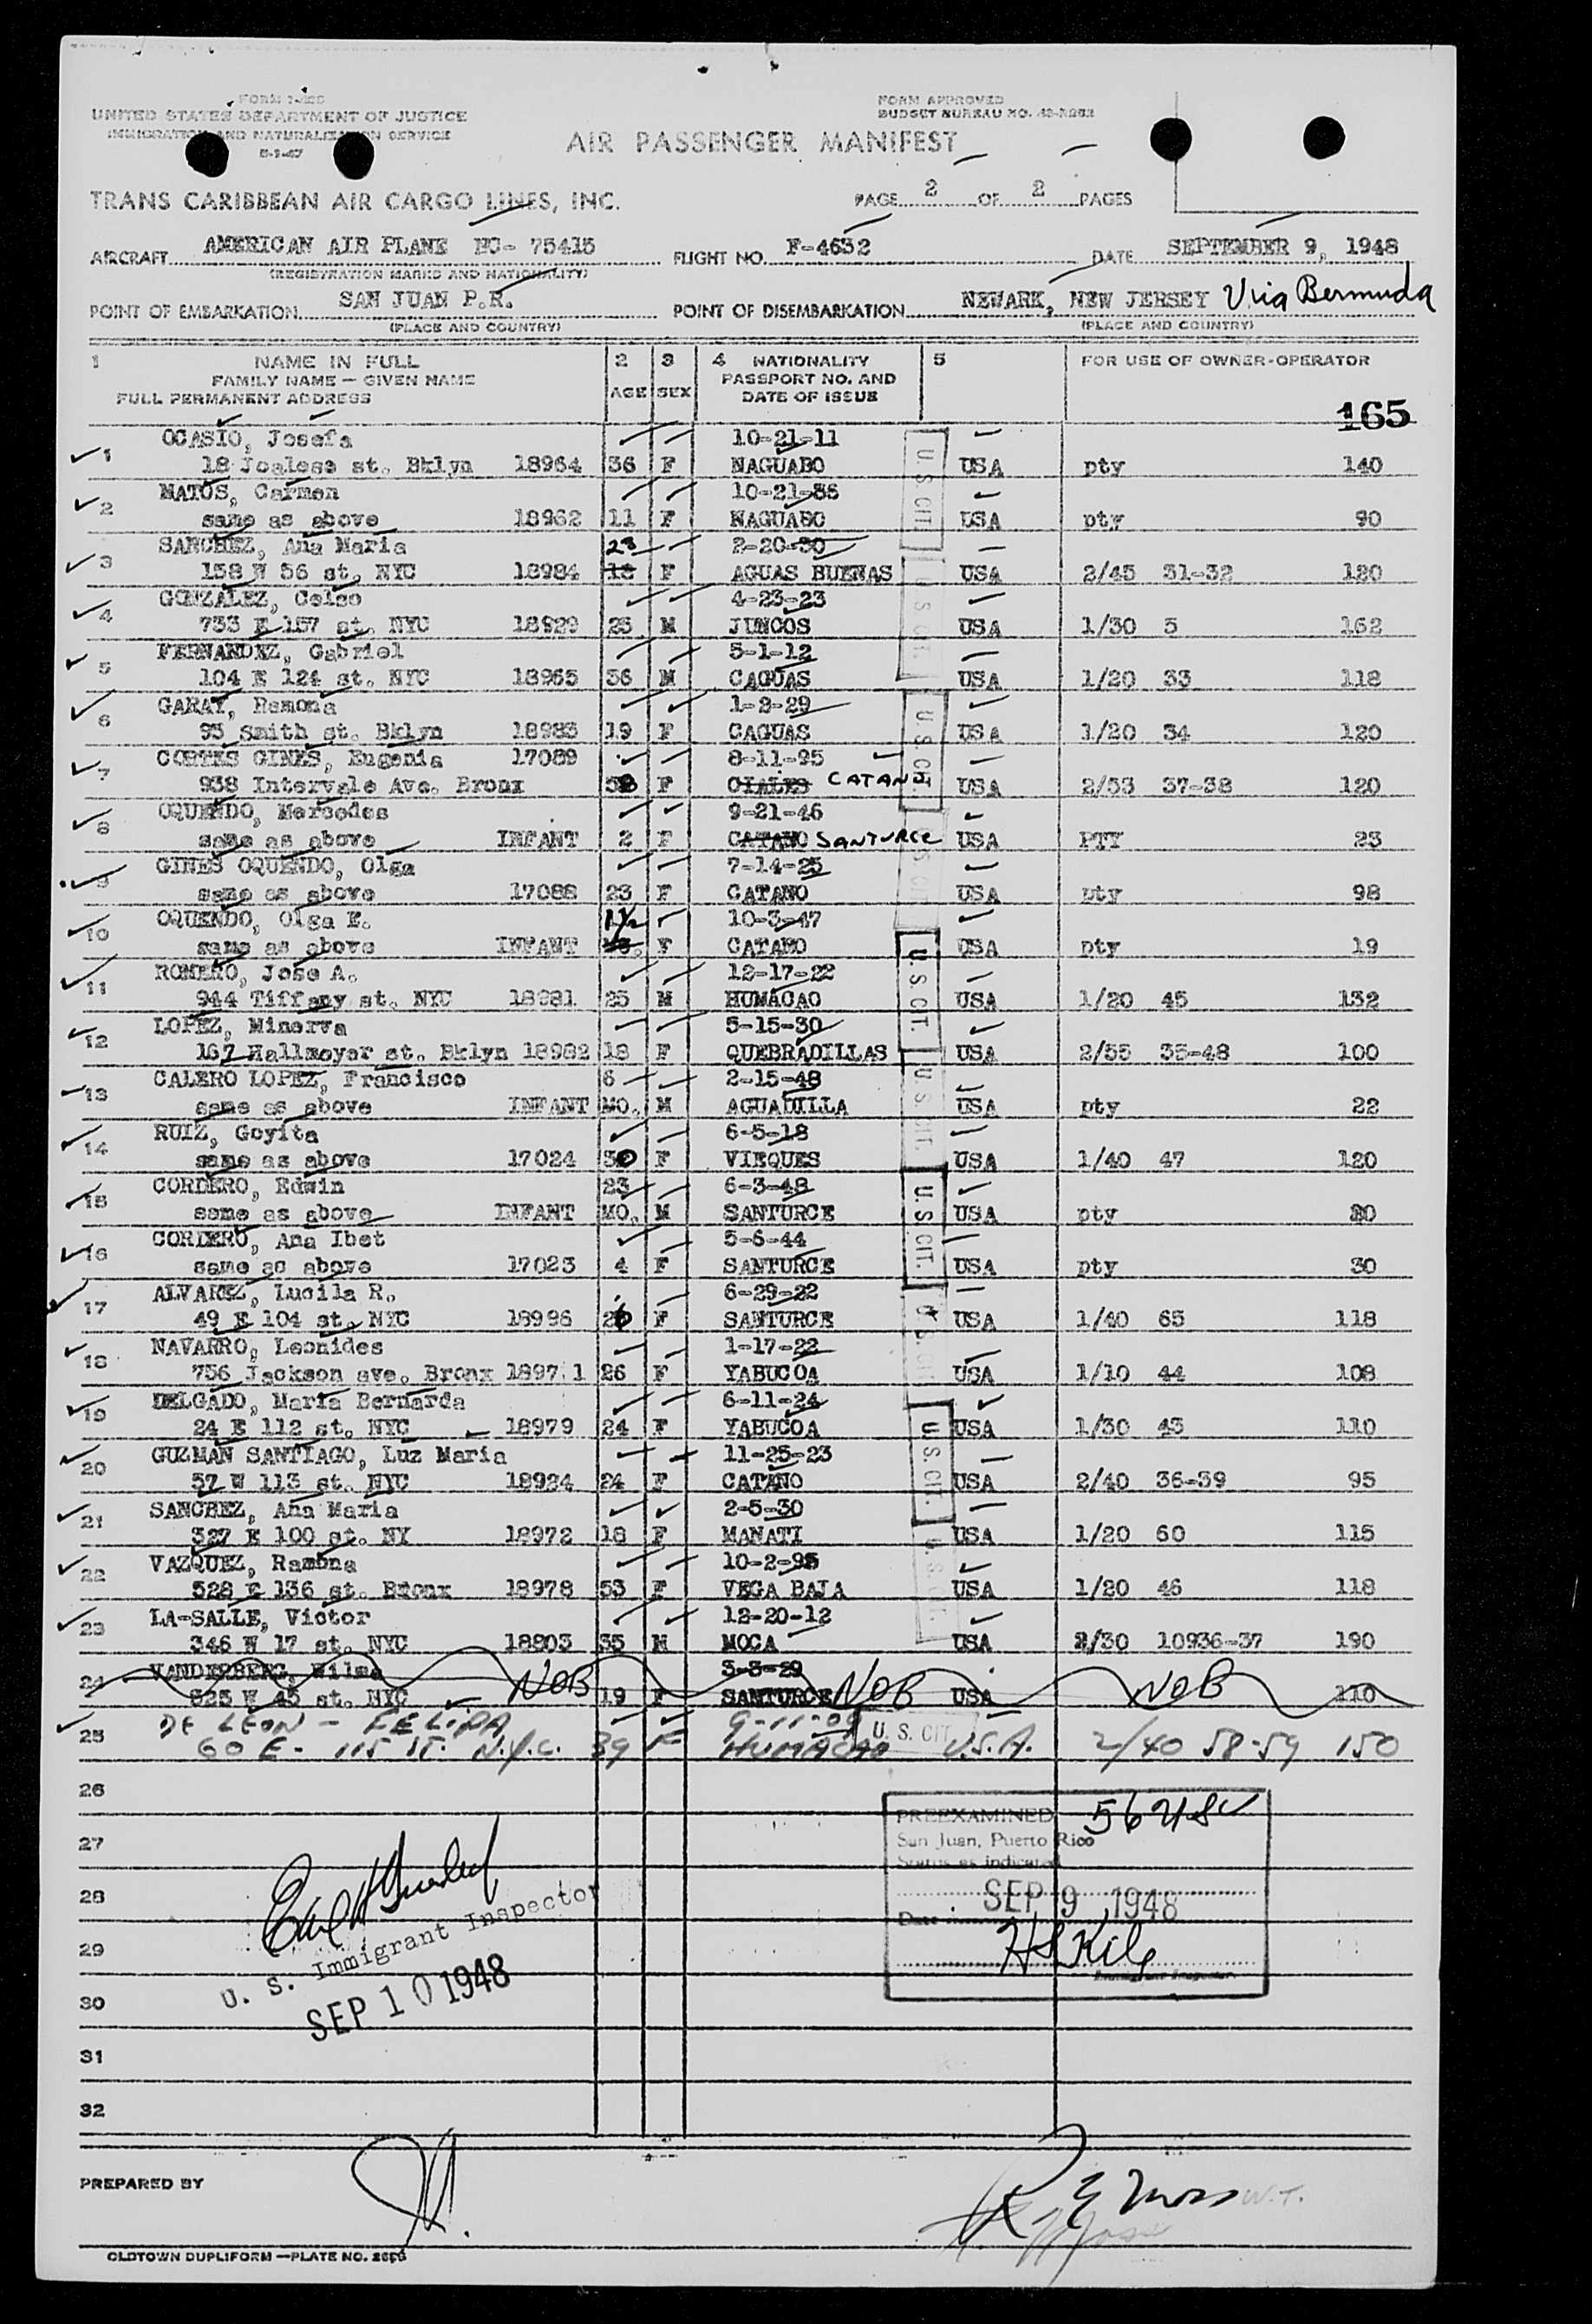 FORM I-466
UNITED STATES DEPARTMENT OF JUSTICE
IMMIGRATION AND NATURALIZATION SERVICE
FORM APPROVED
BUDGET BUREAU NO.
AIR PASSENGER MANIFEST
TRANS CARIBBEAN AIR CARGO LINES, INC.
PAGE 2 OF 2 PAGES
AIRCRAFT AMERICAN AIR PLANE NC- 75415 FLIGHT NO. F-4632 DATE SEPTEMBER 9, 1948
(REGISTRATION MARKS AND NATIONALITY)
POINT OF EMBARKATION SAN JUAN P.R. POINT OF DISEMBARKATION NEWARK, NEW JERSEY Via Bermuda
(PLACE AND COUNTRY) (PLACE AND COUNTRY)
1 NAME IN FULL 2 3 4 NATIONALITY 5 FOR USE OF OWNER-OPERATOR
FAMILY NAME — GIVEN NAME PASSPORT NO. AND
FULL PERMANENT ADDRESS AGE SEX DATE OF ISSUE
165
OCASIO, Josefa 10-21-11
1 18 Joalese st. Bklyn 18964 36 F NAGUABO USA pty 140
MATOS, Carmen 10-21-36
2 same as above 18962 11 F NAGUABO USA pty 90
SANCHEZ, Ana Maria 28 2-20-30
3 158 W 56 st. NYC 18984 18 F AGUAS BUENAS USA 2/45 31-32 120
GONZALEZ, Celso 4-23-23
4 733 E 157 st. NYC 18929 25 M JUNCOS USA 1/30 5 162
FERNANDEZ, Gabriel 5-1-12
5 104 E 124 st. NYC 18965 36 M CAGUAS USA 1/20 33 118
GARAY, Ramona 1-2-29
6 95 Smith st. Bklyn 18983 19 F CAGUAS USA 1/20 34 120
CORTES GINES, Eugenia 17089 8-11-95
7 938 Intervale Ave. Bronx F CIALES CATANO USA 2/53 37-38 120
OQUENDO, Mercedes 9-21-46
8 same as above INFANT 2 F CATANO SANTURCE USA PTY 23
GINES OQUENDO, Olga 7-14-25
9 same as above 17088 23 F CATANO USA pty 98
OQUENDO, Olga E. 10-3-47
10 same as above INFANT F CATANO USA pty 19
ROMERO, Jose A. 12-17-22
11 944 Tiffany st. NYC 18981 25 M HUMACAO USA 1/20 45 132
LOPEZ, Minerva 5-15-30
12 167 Hallmeyer st. Bklyn 18982 18 F QUEBRADILLAS USA 2/55 35-48 100
CALERO LOPEZ, Francisco 6 2-15-48
13 same as above INFANT MO. M AGUADILLA USA pty 22
RUIZ, Goyita 6-5-18
14 same as above 17024 30 F VIEQUES USA 1/40 47 120
CORDERO, Edwin 23 6-3-48
15 same as above INFANT MO. M SANTURCE USA pty 20
CORDERO, Ana Ibet 5-6-44
16 same as above 17023 4 F SANTURCE USA pty 30
ALVAREZ, Lucila R. 6-29-22
17 49 E 104 st. NYC 18996 26 F SANTURCE USA 1/40 65 118
NAVARRO, Leonides 1-17-22
18 756 Jackson ave. Bronx 18971 26 F YABUCOA USA 1/10 44 108
DELGADO, Maria Bernarda 6-11-24
19 24 E 112 st. NYC 18979 24 F YABUCOA USA 1/30 43 110
GUZMAN SANTIAGO, Luz Maria 11-25-23
20 57 W 113 st. NYC 18924 24 F CATANO USA 2/40 36-39 95
SANCHEZ, Ana Maria 2-5-30
21 327 E 100 st. NY 18972 18 F MANATI USA 1/20 60 115
VAZQUEZ, Ramona 10-2-95
22 528 E 136 st. Bronx 18978 53 F VEGA BAJA USA 1/20 46 118
LA-SALLE, Victor 12-20-12
23 346 W 17 st. NYC 18803 35 M MOCA USA 2/30 10936-37 190
VANDERBERG, Wilma 3-3-29
24 525 W 45 st. NYC NOB 19 F SANTURCE NOB USA NOB 110
DE LEON - FELIPA 9-11-09
25 60 E. 115 ST. N.Y.C. 39 F HUMACAO U.S. CIT. U.S.A. 2/40 58-59 150
U.S. CIT.
U.S. CIT.
U.S. CIT.
U.S. CIT.
U.S. CIT.
U.S. CIT.
U.S. CIT.
U.S. CIT.
U.S. CIT.
U.S. CIT.
26
27
28
29
30
31
32
PREEXAMINED 56 USC
San Juan, Puerto Rico
Status as indicated
SEP 9 1948
Date
Immigrant Inspector
U. S. Immigrant Inspector
SEP 10 1948
PREPARED BY
W.T.
OLDTOWN DUPLIFORM —PLATE NO.